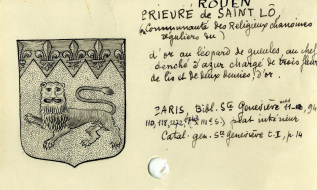 ROUEN
PRIEURÉ de SAINT LÔ,
(Communauté des Religieux chanoines
réguliers du)
d'or au léopard de gueules, au chef
denché d'azur chargé de trois fleurs
de lis et de deux demies, d'or.
PARIS, Bibl. Ste Geneviève
110, 118, plat intérieur
Catal. gen. Ste Geneviève t. I, p. 14